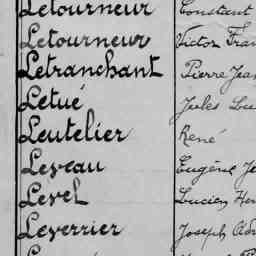 Letourneur Constant
Letourneur Victor
Letranchant Pierre
Letué Jules
Leutelier René
Leveau Eugène
Level Lucien
Leverrier Joseph